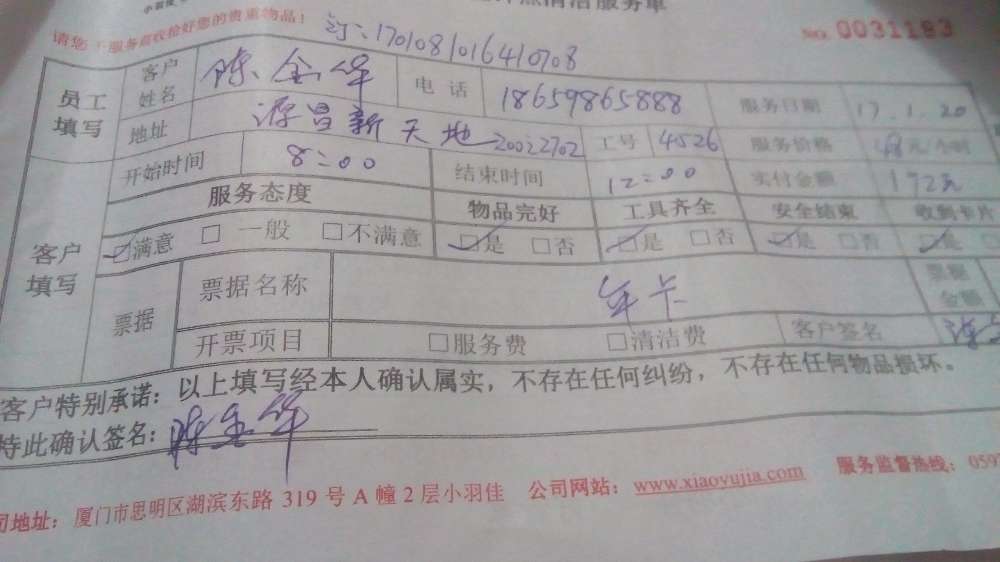 清洁服务单
请您 服务前收捡好您的贵重物品！ 订：1701081016410708 NO. 0031193
员工填写 客户姓名 陈金华 电话 18659865888 服务日期 17.1.20
地址 源昌新天地 工号 4526 服务价格 48元/小时
开始时间 8:00 结束时间 12:00 实付金额 192元
客户填写 服务态度 物品完好 工具齐全 安全结束 收到卡片
☑满意 □一般 □不满意 ☑是 □否 ☑是 □否 ☑是 □否 ☑是 □
票据 票据名称 年卡 票据金额
开票项目 □服务费 □清洁费 客户签名 陈
客户特别承诺：以上填写经本人确认属实，不存在任何纠纷，不存在任何物品损坏。
特此确认签名：陈金华
司地址：厦门市思明区湖滨东路 319 号 A 幢 2 层小羽佳 公司网站：www.xiaoyujia.com 服务监督热线：059